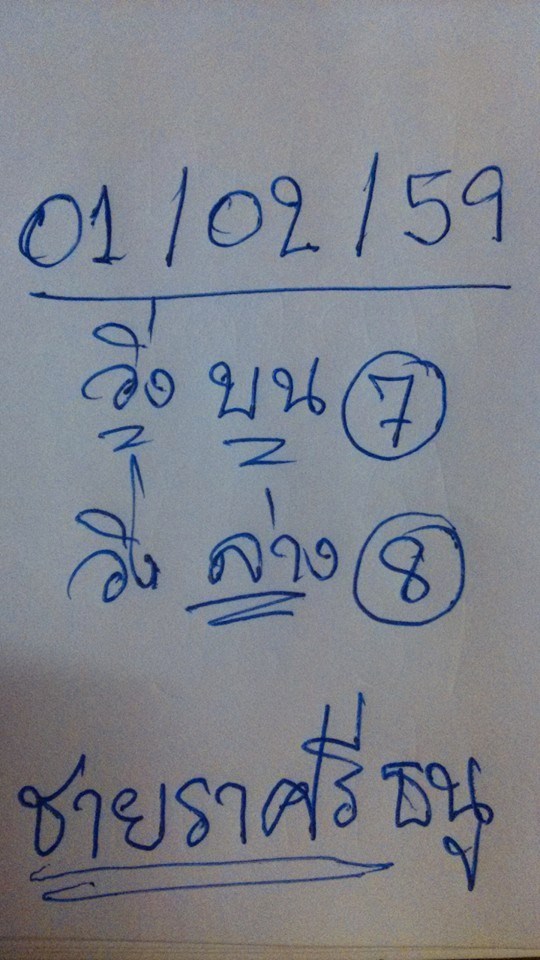 01/02/59
วิ่ง บน 7
วิ่ง ล่าง 8
ชายราศรีธนู